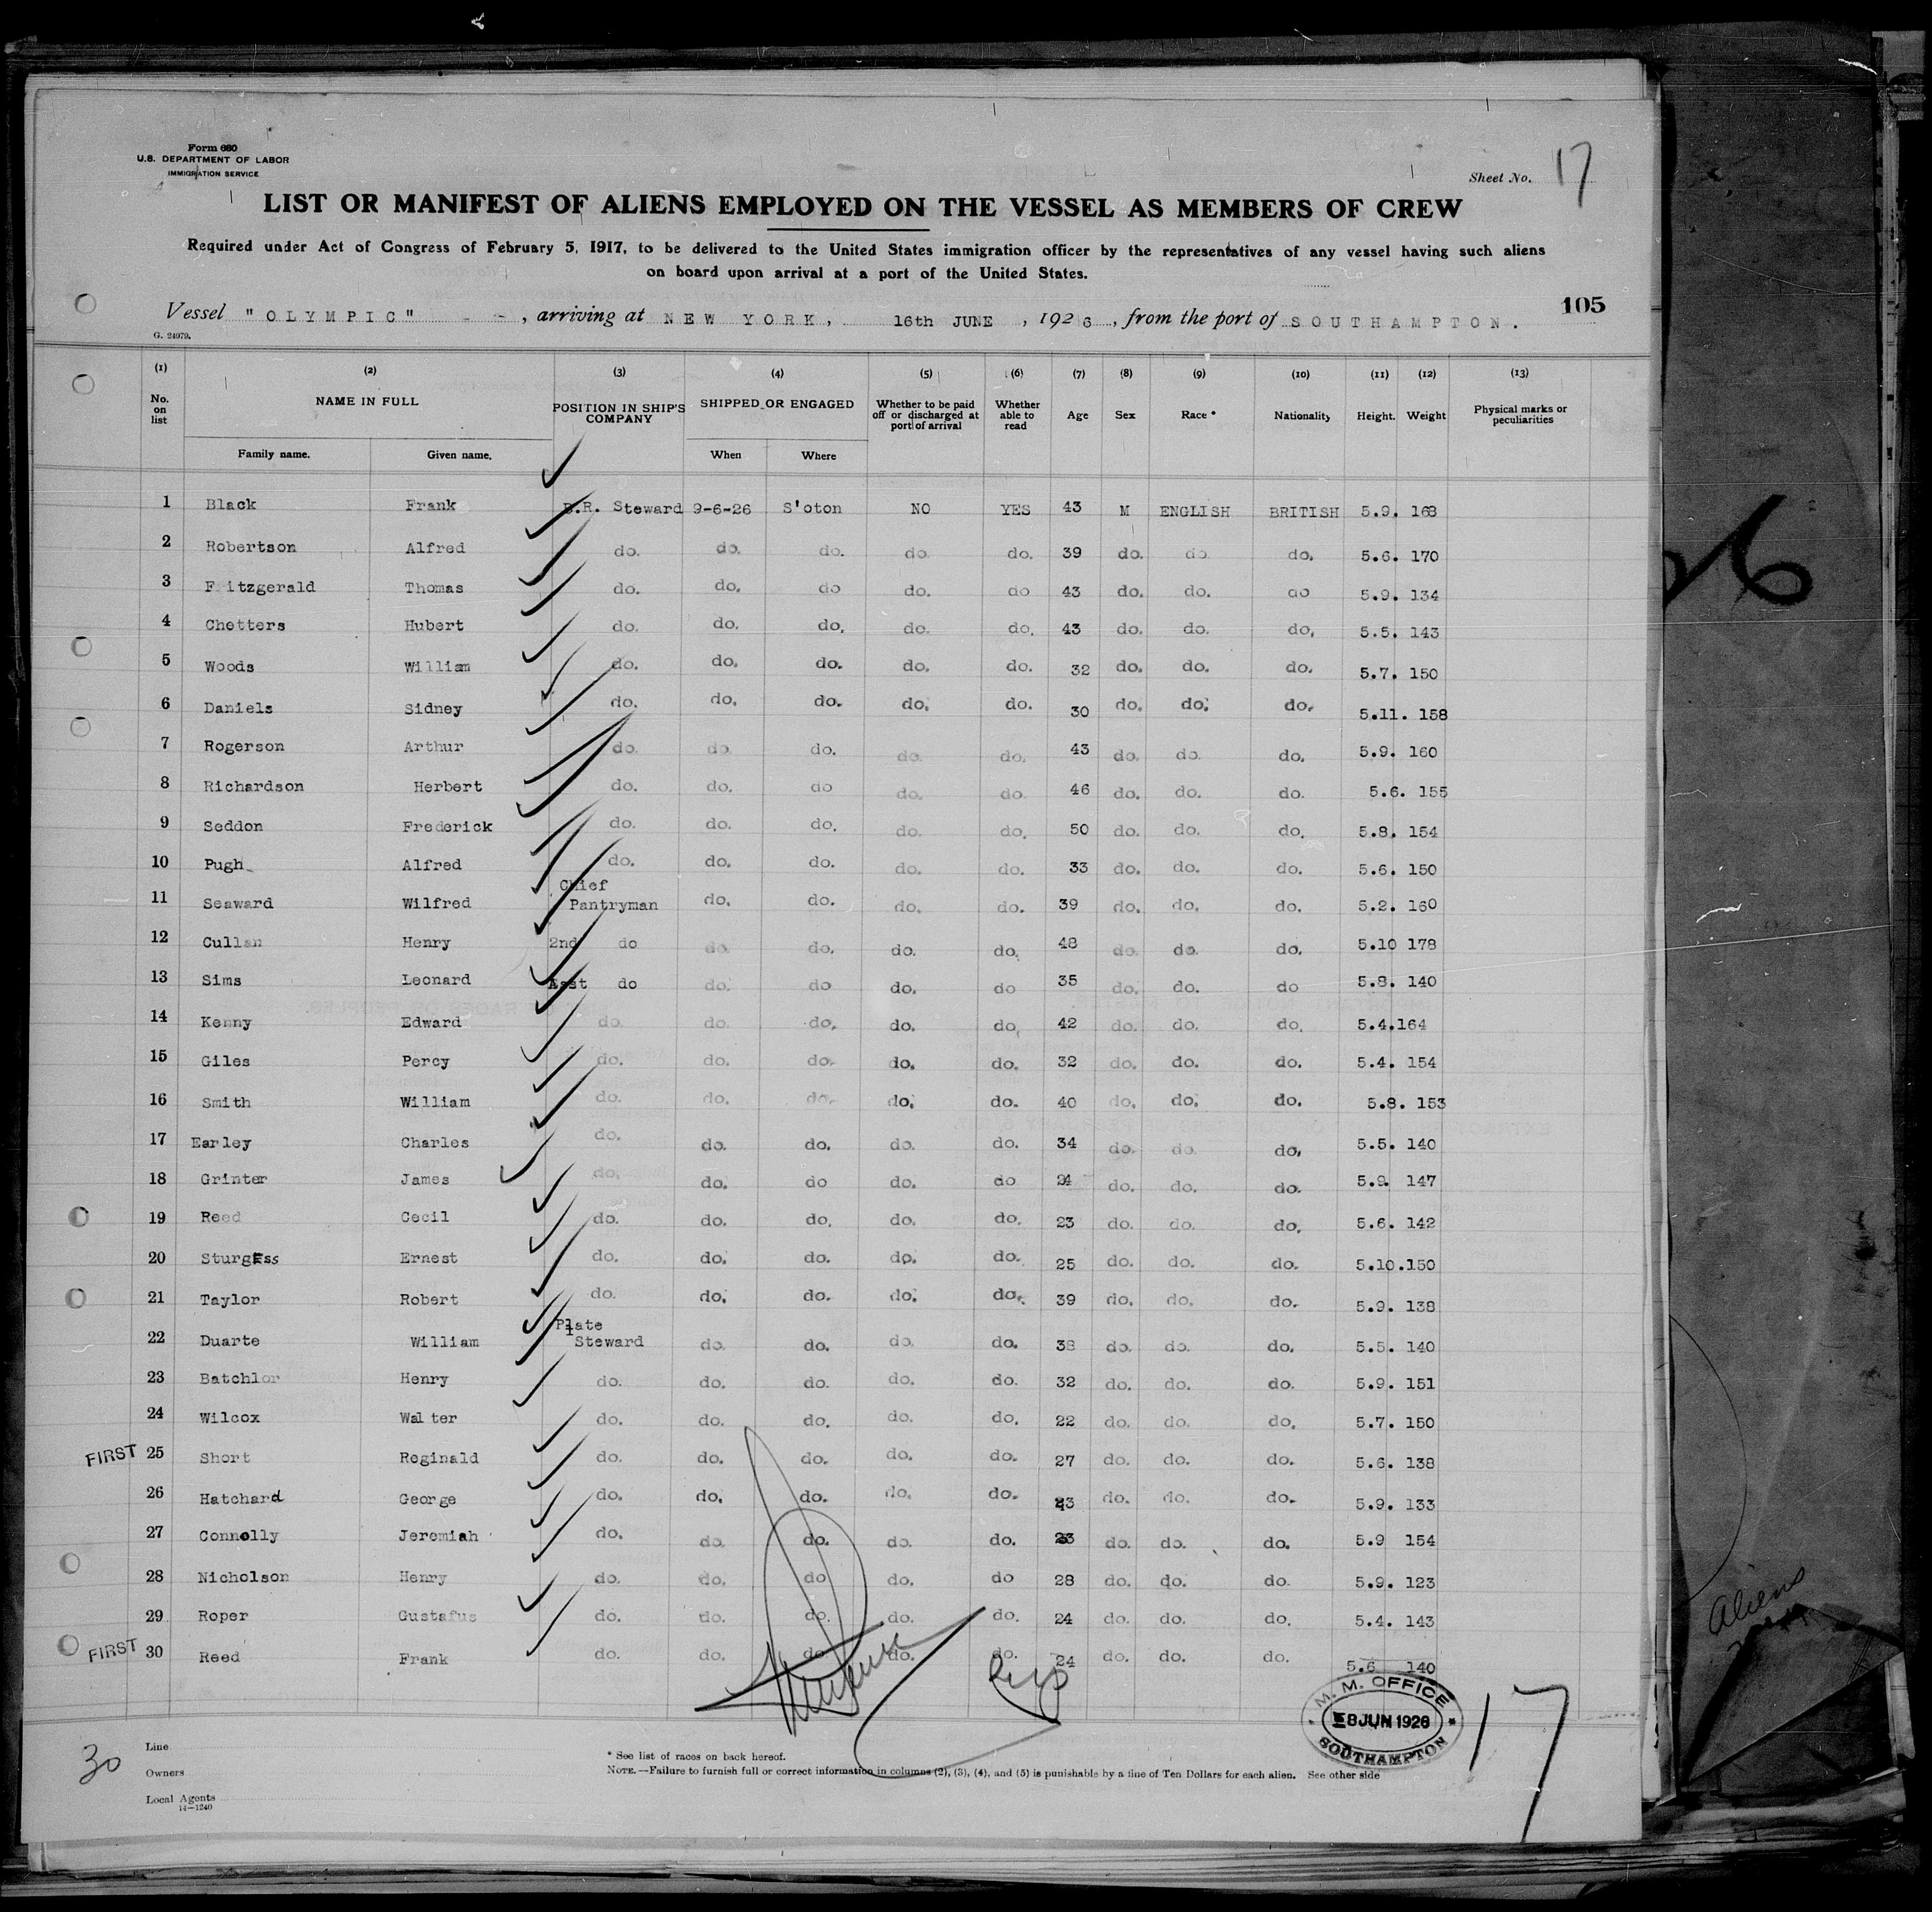 Form 680
U.S. DEPARTMENT OF LABOR
IMMIGRATION SERVICE
Sheet No. 17
LIST OR MANIFEST OF ALIENS EMPLOYED ON THE VESSEL AS MEMBERS OF CREW
Required under Act of Congress of February 5, 1917, to be delivered to the United States immigration officer by the representatives of any vessel having such aliens
on board upon arrival at a port of the United States.
105
Vessel "OLYMPIC" - -, arriving at NEW YORK, 16th JUNE, 1926, from the port of SOUTHAMPTON.
G. 24079.
(1) (2) (3) (4) (5) (6) (7) (8) (9) (10) (11) (12) (13)
No. on list NAME IN FULL POSITION IN SHIP'S COMPANY SHIPPED OR ENGAGED Whether to be paid off or discharged at port of arrival Whether able to read Age Sex Race * Nationality Height. Weight Physical marks or peculiarities
Family name. Given name. When Where
1 Black Frank D.R. Steward 9-6-26 S'oton NO YES 43 M ENGLISH BRITISH 5.9. 168
2 Robertson Alfred do. do. do. do. do. 39 do. do. do. 5.6. 170
3 Fitzgerald Thomas do. do. do do. do 43 do. do. do 5.9. 134
4 Chetters Hubert do. do. do. do. do. 43 do. do. do. 5.5. 143
5 Woods William do. do. do. do. do. 32 do. do. do. 5.7. 150
6 Daniels Sidney do. do. do. do. do. 30 do. do. do. 5.11. 158
7 Rogerson Arthur do. do. do. do. do. 43 do. do. do. 5.9. 160
8 Richardson Herbert do. do. do do. do. 46 do. do. do. 5.6. 155
9 Seddon Frederick do. do. do. do. do. 50 do. do. do. 5.8. 154
10 Pugh Alfred do. do. do. do. do. 33 do. do. do. 5.6. 150
11 Seaward Wilfred Chief Pantryman do. do. do. do. 39 do. do. do. 5.2. 160
12 Cullen Henry 2nd do do. do. do. do. 48 do. do. do. 5.10 178
13 Sims Leonard Asst do do. do do. do 35 do. do. do 5.8. 140
14 Kenny Edward do. do. do. do. do. 42 do. do. do. 5.4.164
15 Giles Percy do. do. do. do. do. 32 do. do. do. 5.4. 154
16 Smith William do. do. do. do. do. 40 do. do. do. 5.8. 153
17 Earley Charles do. do. do. do. do. 34 do. do. do. 5.5. 140
18 Grinter James do. do. do do. do 24 do. do. do. 5.9. 147
19 Reed Cecil do. do. do. do. do. 23 do. do. do. 5.6. 142
20 Sturgess Ernest do. do. do. do. do. 25 do. do. do. 5.10.150
21 Taylor Robert do. do. do. do. do. 39 do. do. do. 5.9. 138
22 Duarte William Plate Steward do. do. do. do. 38 do. do. do. 5.5. 140
23 Batchlor Henry do. do. do. do. do. 32 do. do. do. 5.9. 151
24 Wilcox Walter do. do. do. do. do. 22 do. do. do. 5.7. 150
FIRST 25 Short Reginald do. do. do. do. do. 27 do. do. do. 5.6. 138
26 Hatchard George do. do. do. do. do. do. do. do. 5.9. 133
27 Connolly Jeremiah do. do. do. do. do. do. do. do. 5.9 154
28 Nicholson Henry do. do. do do. do 28 do. do. do. 5.9. 123
29 Roper Gustafus do. do. do. do. do. 24 do. do. do. 5.4. 143
FIRST 30 Reed Frank do. do. do do. do. 24 do. do. do. 5.6 140
M. M. OFFICE
8 JUN 1926
SOUTHAMPTON
17
30
Line
Owners
Local Agents
14—1240
* See list of races on back hereof.
NOTE.—Failure to furnish full or correct information in columns (2), (3), (4), and (5) is punishable by a fine of Ten Dollars for each alien. See other side
26
Aliens